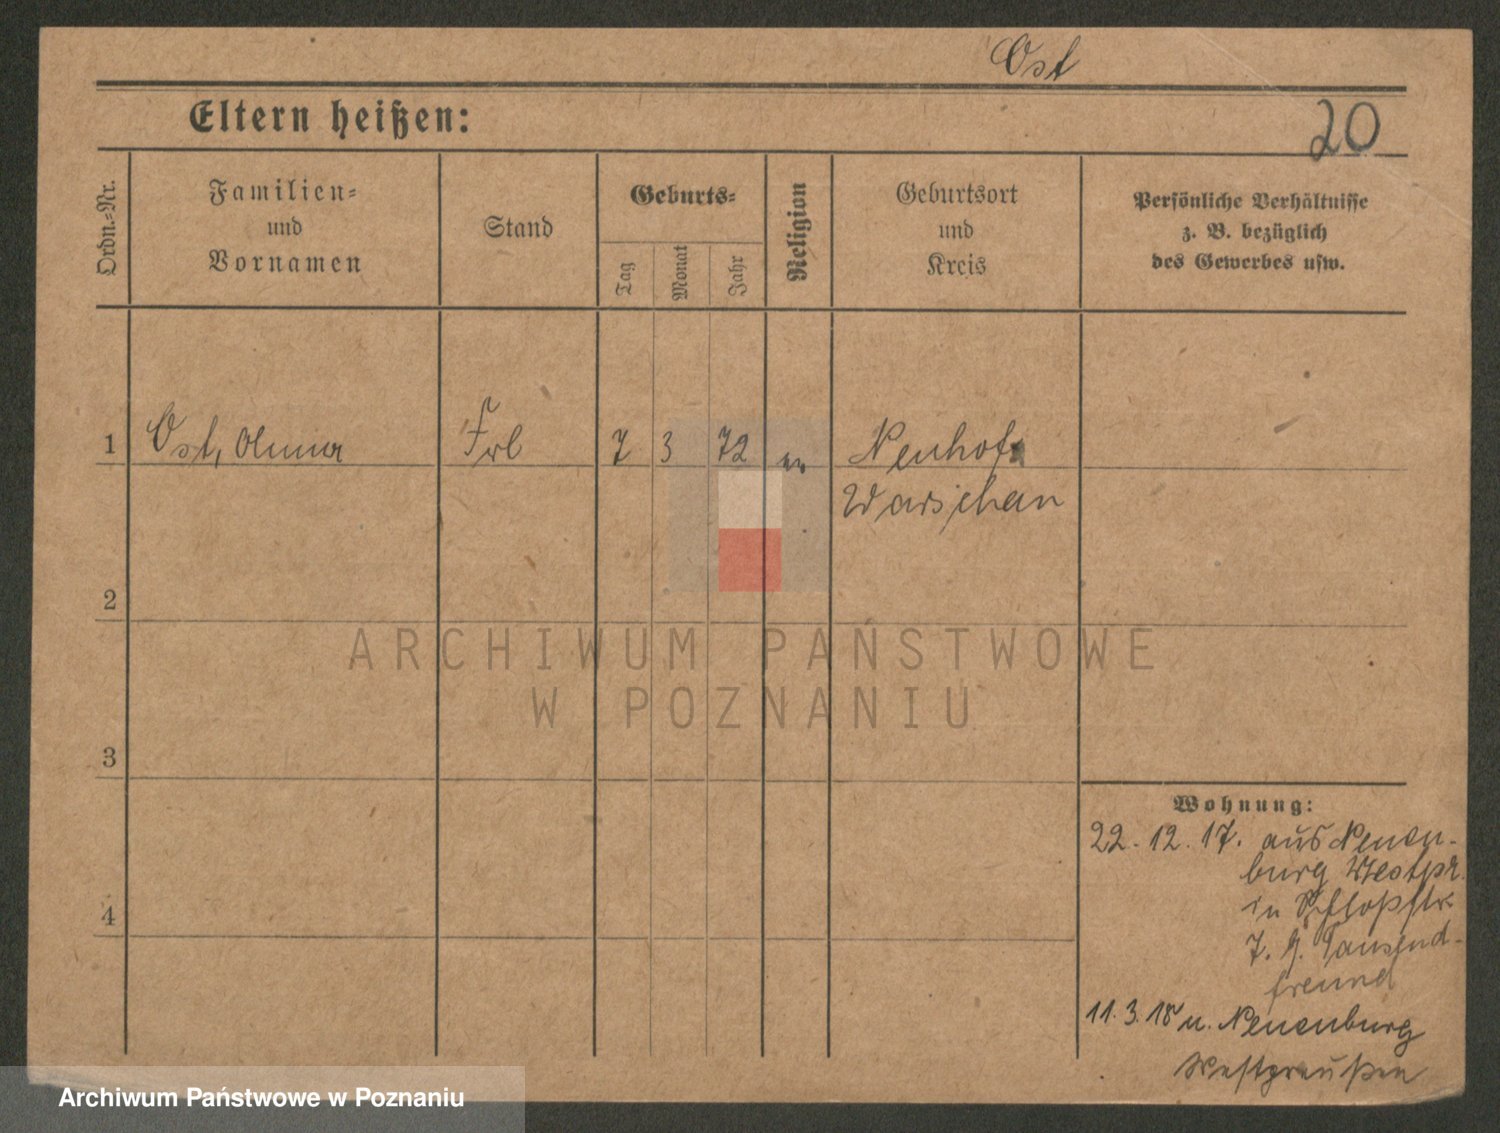 Ost
20
Eltern heißen:
Ordn.-Nr.
Familien-
und
Vornamen
Stand
Geburts-
Tag
Monat
Jahr
Religion
Geburtsort
und
Kreis
Persönliche Verhältnisse
z. B. bezüglich
des Gewerbes usw.
1 Ost, Frl 7 3 72 Neuhof
Warschau
2
3
4
Wohnung:
22. 12. 17. aus Neuen-
burg Westpr.
in Schloßstr.
7. b. Tausend-
freund
11. 3. 18 n. Neuenburg
Westpreußen
ARCHIWUM PAŃSTWOWE
W POZNANIU
Archiwum Państwowe w Poznaniu